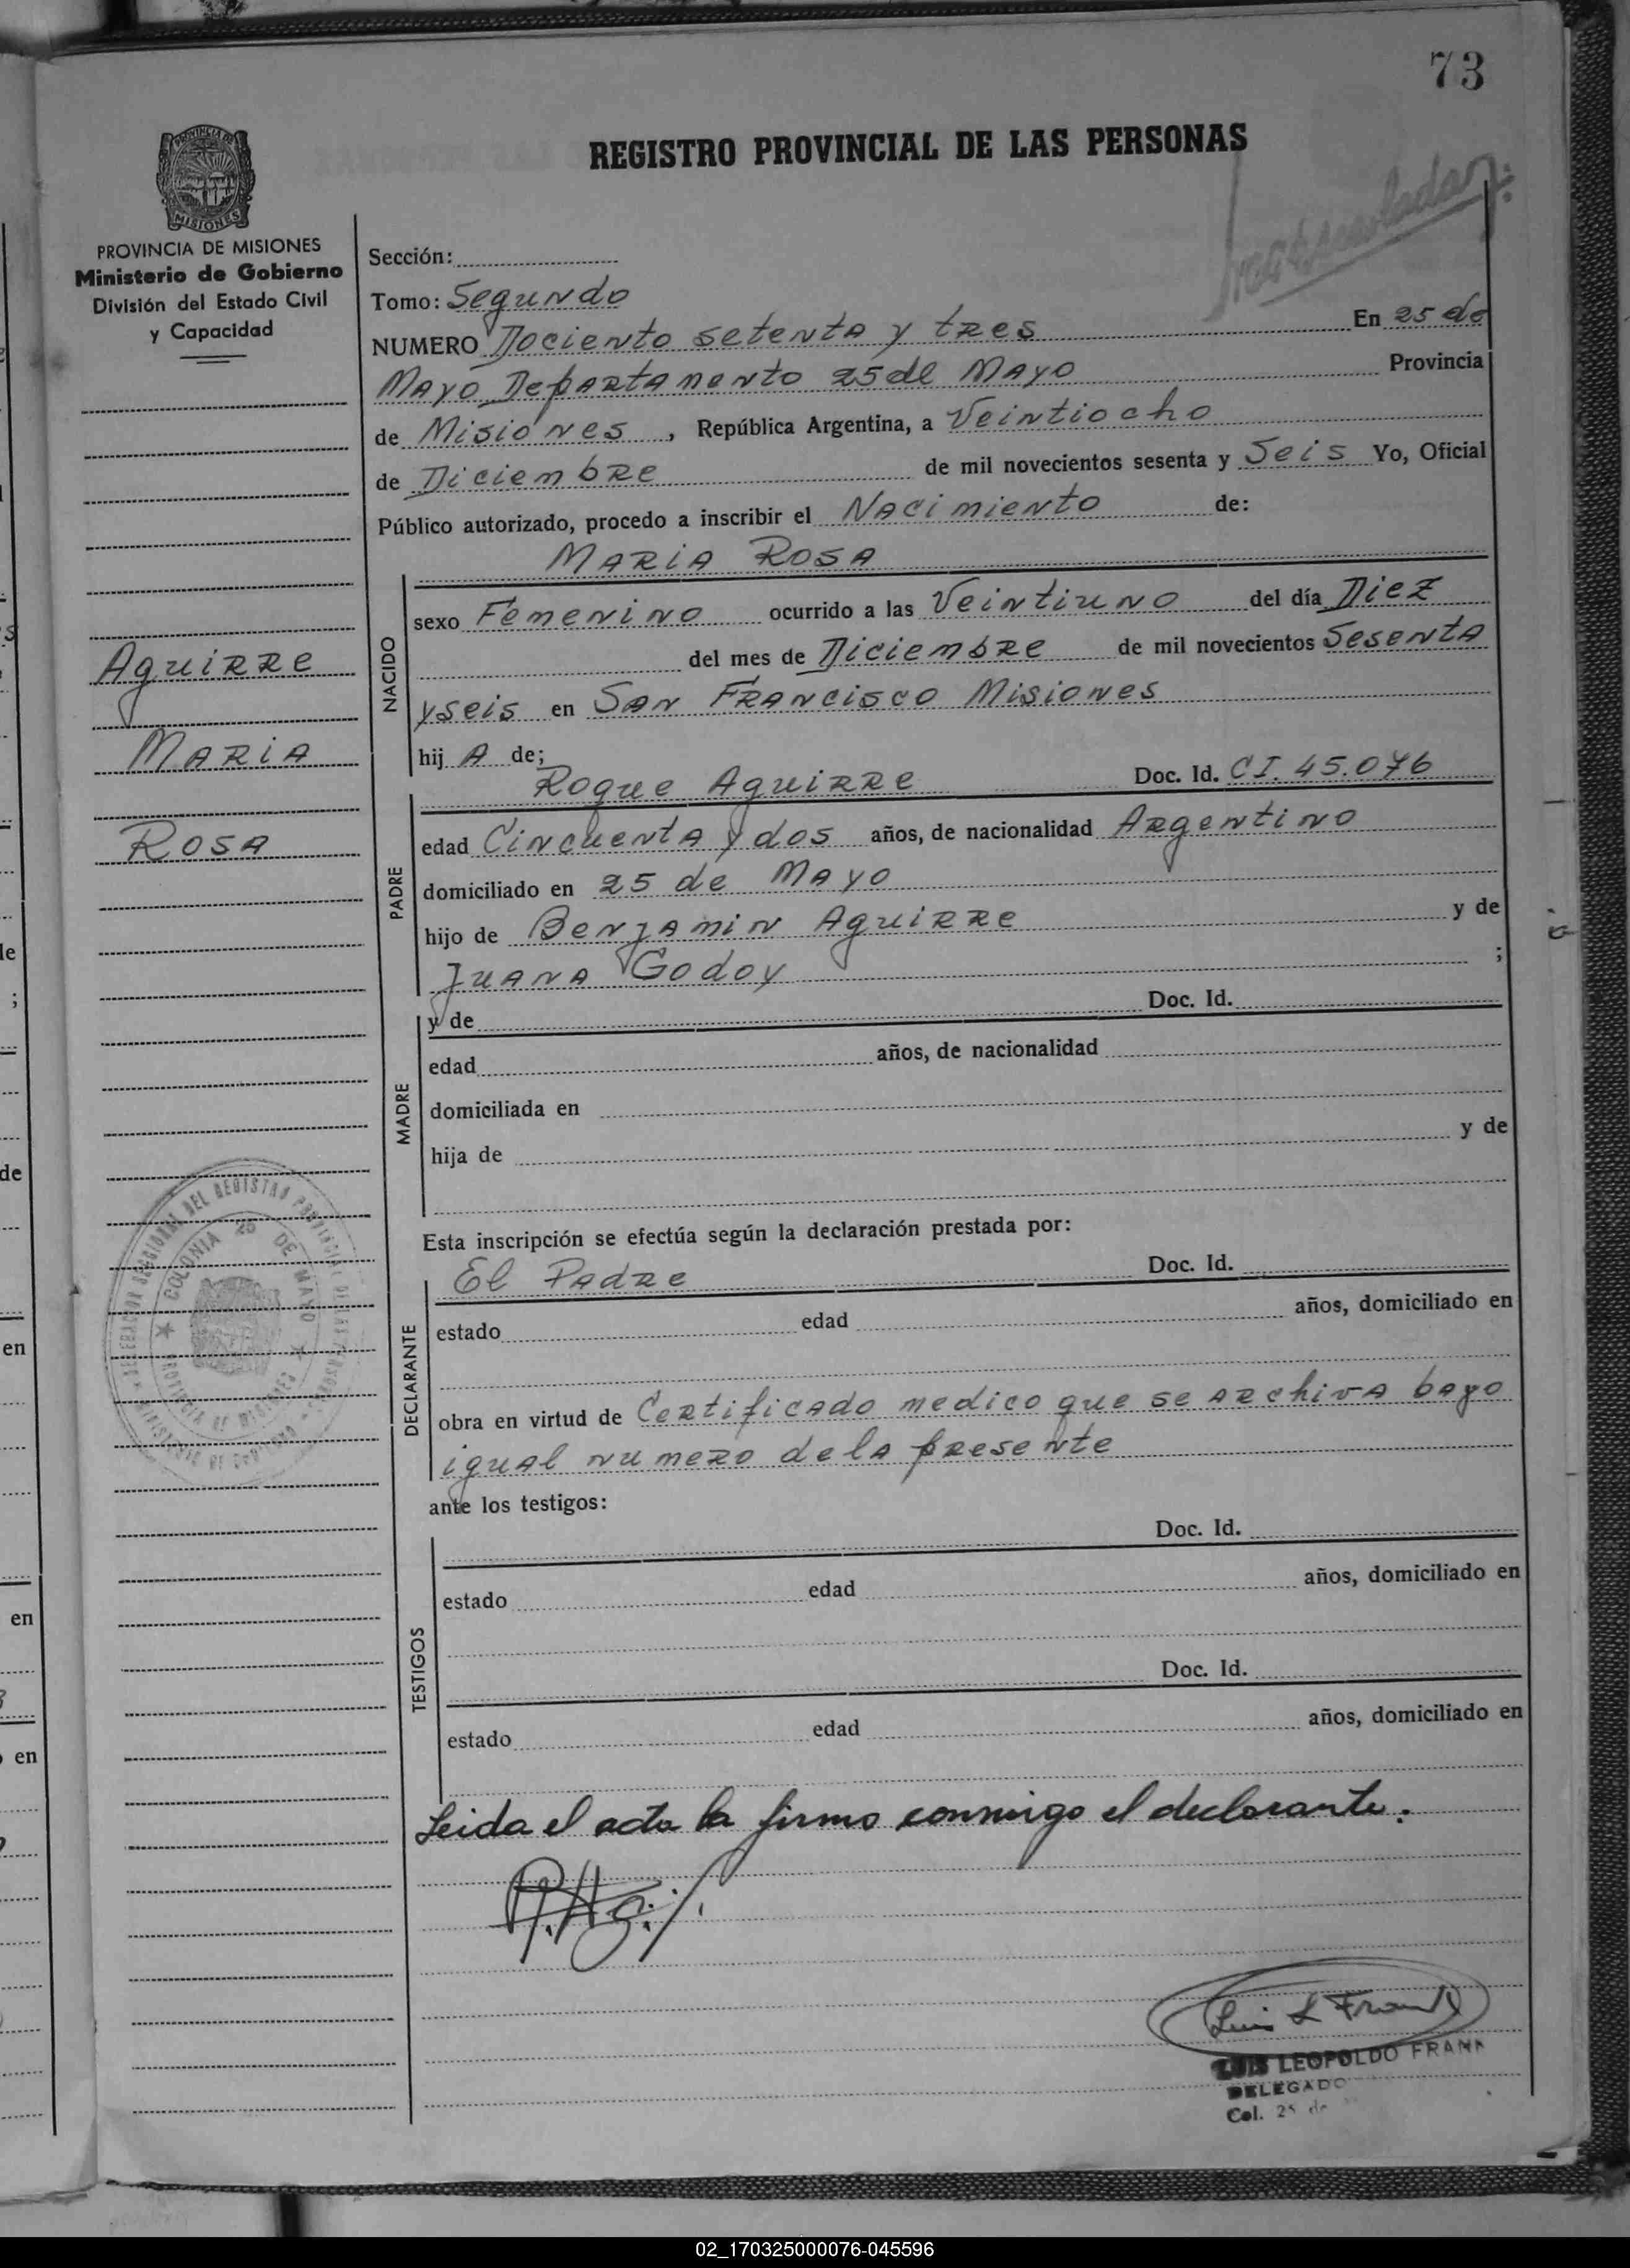 73
REGISTRO PROVINCIAL DE LAS PERSONAS
PROVINCIA DE
MISIONES
PROVINCIA DE MISIONES
Ministerio de Gobierno
División del Estado Civil
y Capacidad
Sección:
Tomo: Segundo
NUMERO Dociento setenta y tres En 25 de
Mayo Departamento 25 de Mayo Provincia
de Misiones, República Argentina, a Veintiocho
de Diciembre de mil novecientos sesenta y Seis Yo, Oficial
Público autorizado, procedo a inscribir el Nacimiento de:
MARIA ROSA
NACIDO
sexo Femenino ocurrido a las Veintiuno del día Diez
del mes de Diciembre de mil novecientos Sesenta
y seis en San Francisco Misiones
hij A de;
Aguirre
Maria
Rosa
PADRE
Roque Aguirre Doc. Id. CI. 45.076
edad Cincuenta y dos años, de nacionalidad Argentino
domiciliado en 25 de Mayo
hijo de Benjamin Aguirre y de
Juana Godoy ;
MADRE
y de Doc. Id.
edad años, de nacionalidad
domiciliada en
hija de y de
Esta inscripción se efectúa según la declaración prestada por:
DECLARANTE
El Padre Doc. Id.
estado edad años, domiciliado en
obra en virtud de Certificado medico que se archiva bayo
igual numero de la presente
COLONIA 25 DE MAYO
PROVINCIA DE MISIONES
ante los testigos:
TESTIGOS
Doc. Id.
estado edad años, domiciliado en
Doc. Id.
estado edad años, domiciliado en
Leida el acta la firma conmigo el declarante.
Luis L Frank
LUIS LEOPOLDO FRANK
DELEGADO
Col. 25 de
02_170325000076-045596